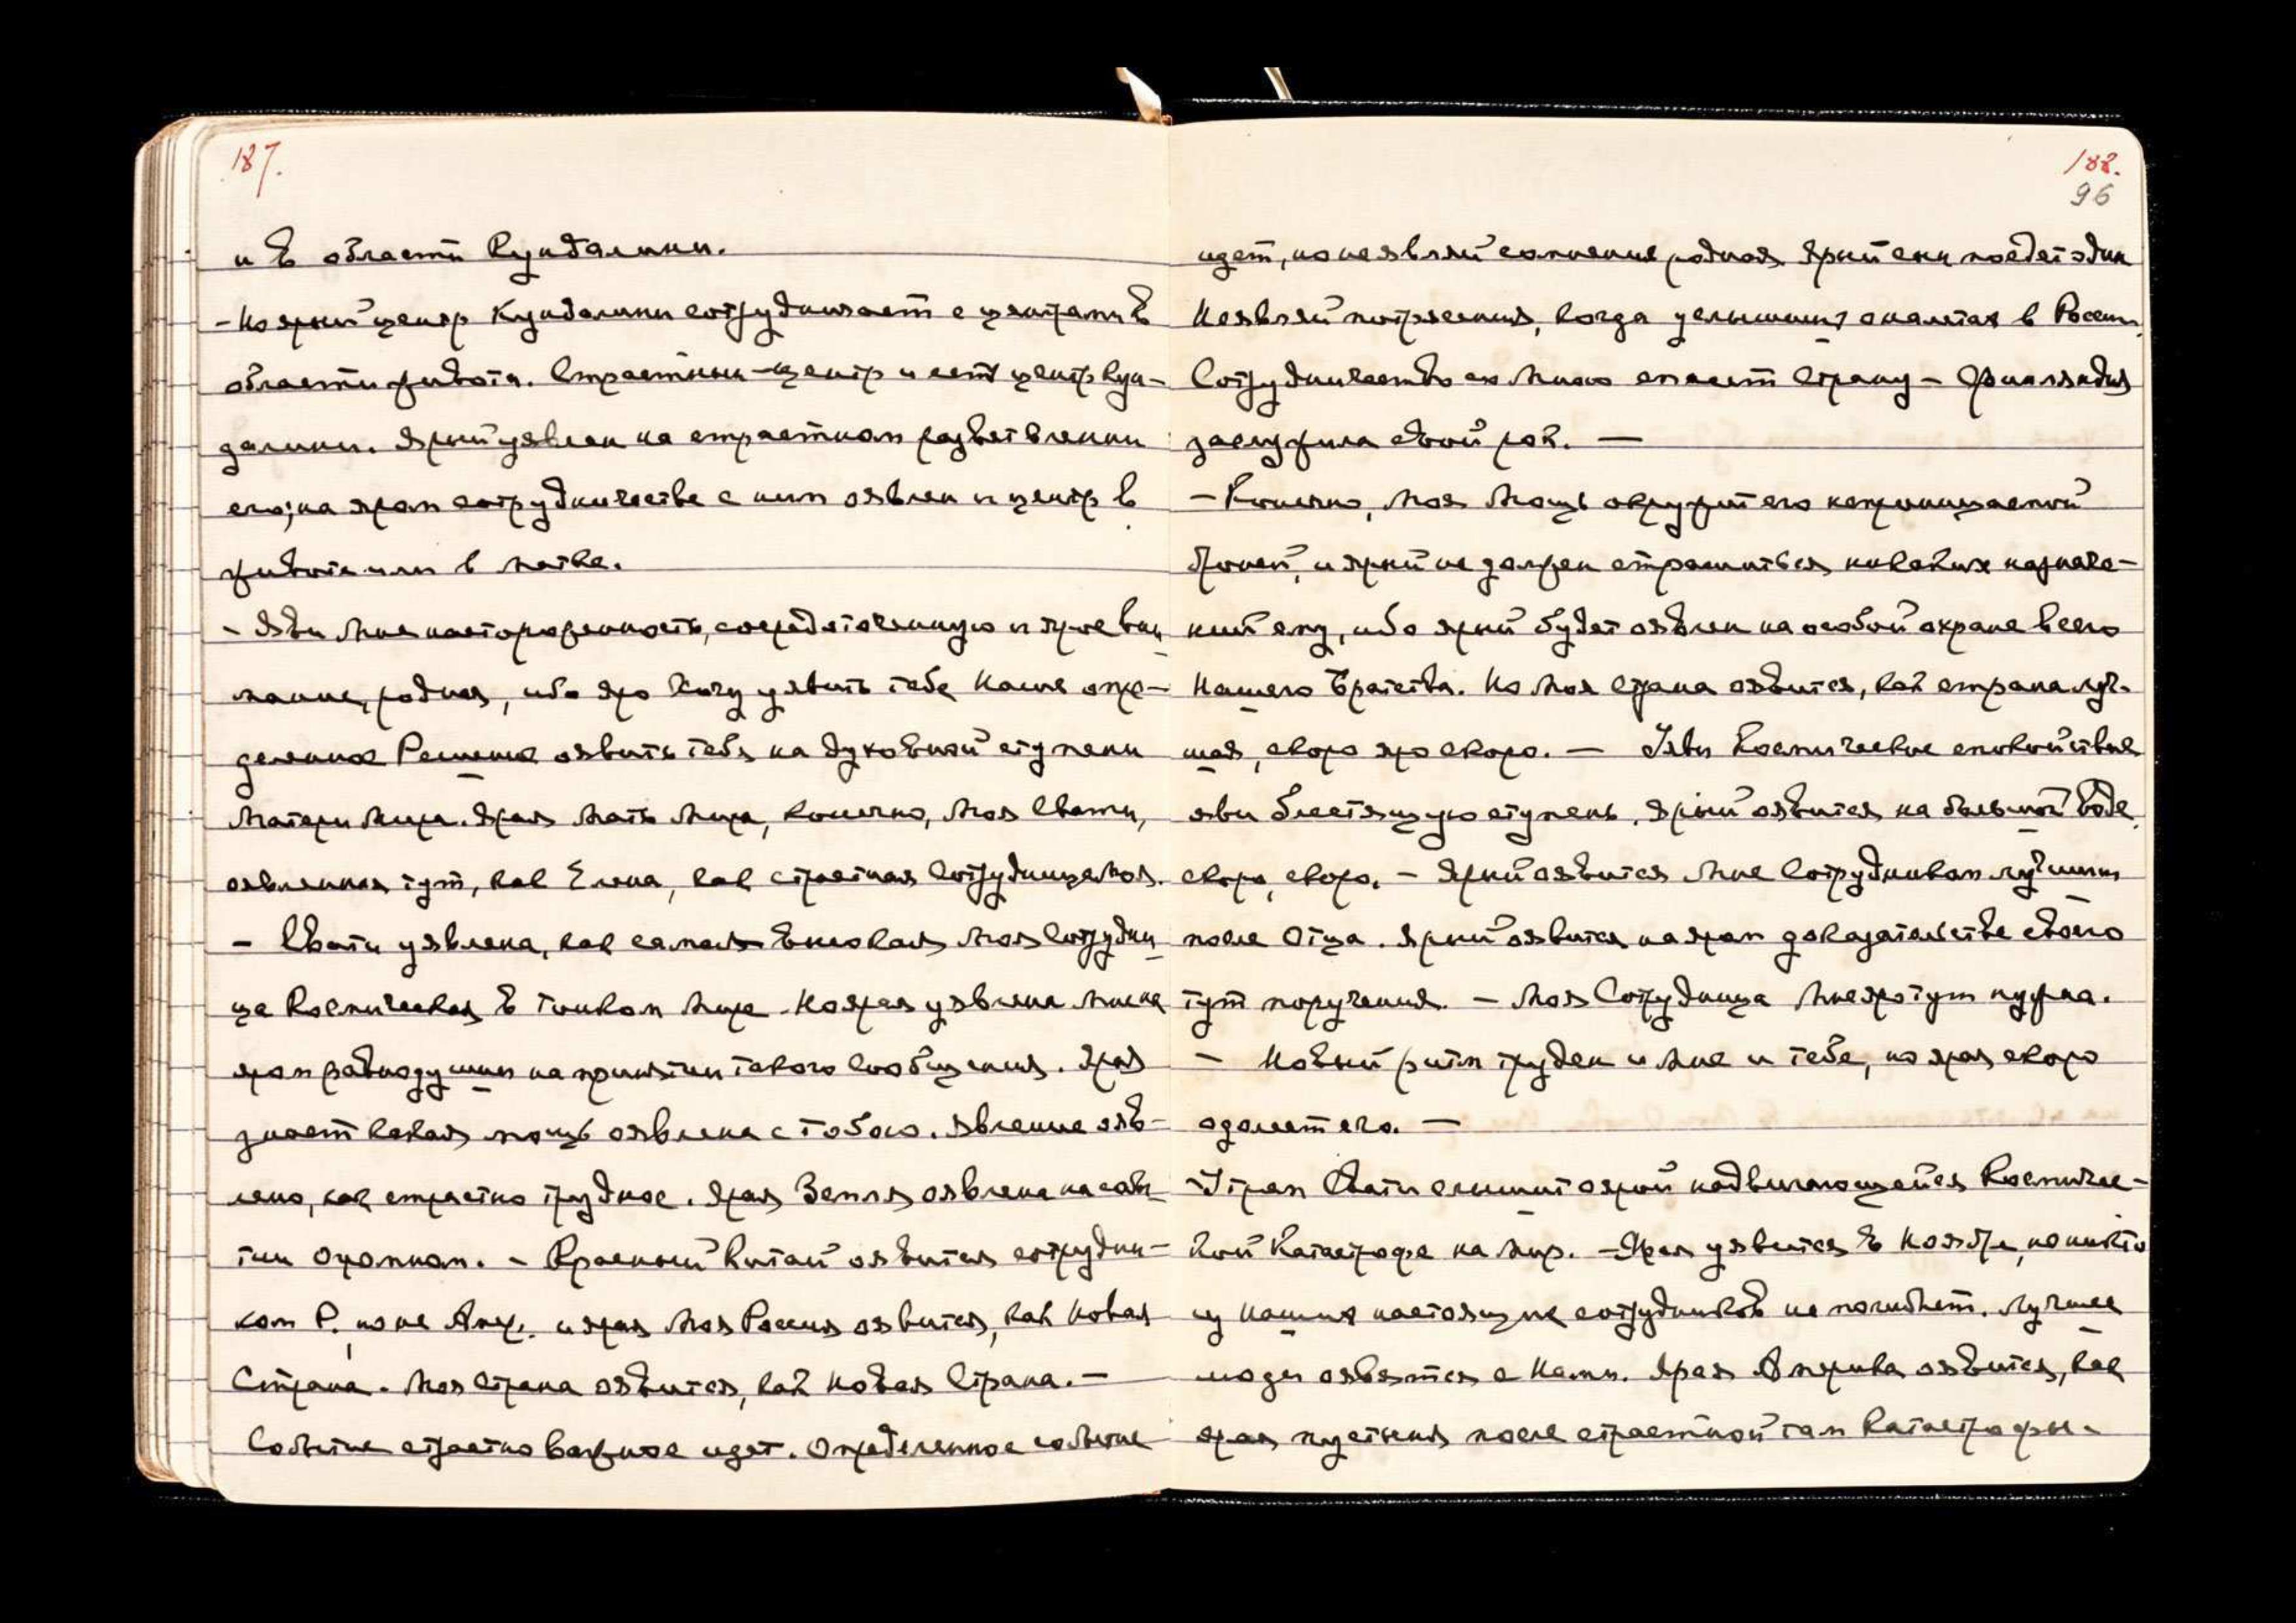 187.
и в области Кундалини.
- Но ярый центр Кундалини сотрудничает с центрами в
области живота. Страстный - центр и есть центр Кун-
далини. Ярый уявлен на страстном разветвлении
его; на яром сотрудничестве с ним оявлен и центр в
животе или в матке.
- Яви Мне настороженность, сосредоточенную и ярое вни-
мание, родная, ибо яро Хочу уявить тебе Наше опре-
деленное Решение оявить тебя на духовной ступени
Матери Мира. Ярая Мать Мира, конечно, Моя Свати,
оявленная тут, как Елена, как страстная Сотрудница Моя.
- Свати уявлена, как самая высокая Моя Сотрудни-
ца Космическая в Тонком Мире. Но ярая уявлена Мне на
яром равнодушии на принятии такого сообщения. Ярая
знает какая мощь оявлена с тобою. Явление явл-
ено, как страстно трудное. Ярая Земля оявлена на
огромном. - Красный Китай оявится сотрудни-
ком Р. но не Амер. и ярая Моя Россия оявится, как Новая
Страна. Моя Страна оявится, как Новая Страна. -
Событие страстно важное идет. Определенное событие
188.
96
идет, но не являй сомнения родная. Ярый сын поедет один
Не являй потрясения, когда услышишь о налетах в России.
Сотрудничество со Мною спасет Страну - Финляндия
заслужила свой рок. -
- Конечно, Моя Мощь окружит его непроницаемой
броней, и ярый не должен страшиться никаких назначе-
ний ему, ибо ярый будет оявлен на особой охране всего
Нашего Братства. Но Моя Страна оявится, как страна луч-
шая, скоро яро скоро. - Яви Космическое спокойствие
яви блестящую ступень. Ярый оявится на большой воде
скоро, скоро. - Ярый оявится Мне Сотрудником лучшим
после Отца. Ярый оявится на яром доказательстве своего
тут поручения. - Моя Сотрудница Мне яро тут нужна.
- Новый ритм труден и Мне и тебе, но ярая скоро
одолеет его. -
- Утром Свати слышит о ярой надвигающейся Космичес-
кой Катастрофе на мир. - Ярая уявится в Ноябре, но никто
из Наших настоящих сотрудников не погибнет. Лучшие
люди оявятся с Нами. Ярая Америка оявится, как
ярая пустыня после страстной там Катастрофы.